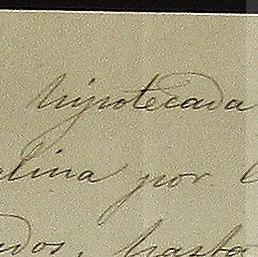 hipotecada
alina por
dos, hasta